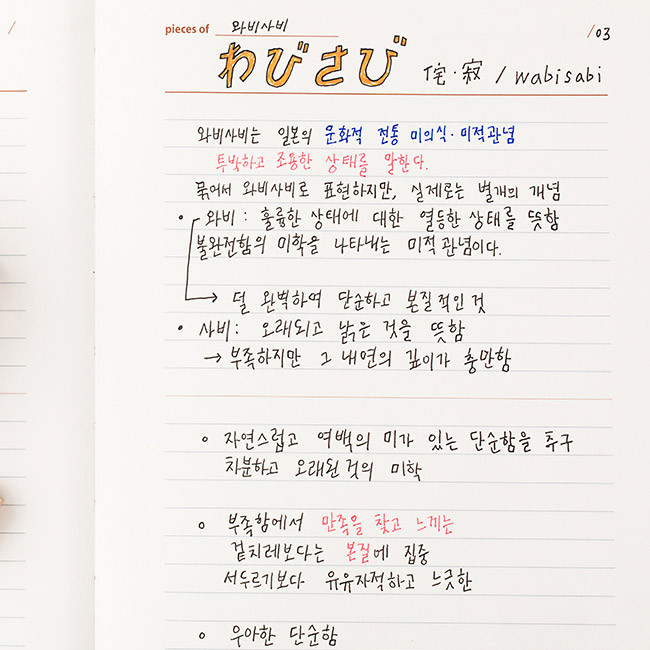 pieces of 와비사비
/03
わびさび 侘·寂 / wabisabi
와비사비는 일본의 문화적 전통 미의식·미적관념
투박하고 조용한 상태를 말한다.
묶어서 와비사비로 표현하지만, 실제로는 별개의 개념
• 와비 : 훌륭한 상태에 대한 열등한 상태를 뜻함
불완전함의 미학을 나타내는 미적 관념이다.
→ 덜 완벽하여 단순하고 본질적인 것
• 사비 : 오래되고 낡은 것을 뜻함
→ 부족하지만 그 내면의 깊이가 충만함
∘ 자연스럽고 여백의 미가 있는 단순함을 추구
차분하고 오래된 것의 미학
∘ 부족함에서 만족을 찾고 느끼는
겉치레보다는 본질에 집중
서두르기보다 유유자적하고 느긋한
∘ 우아한 단순함